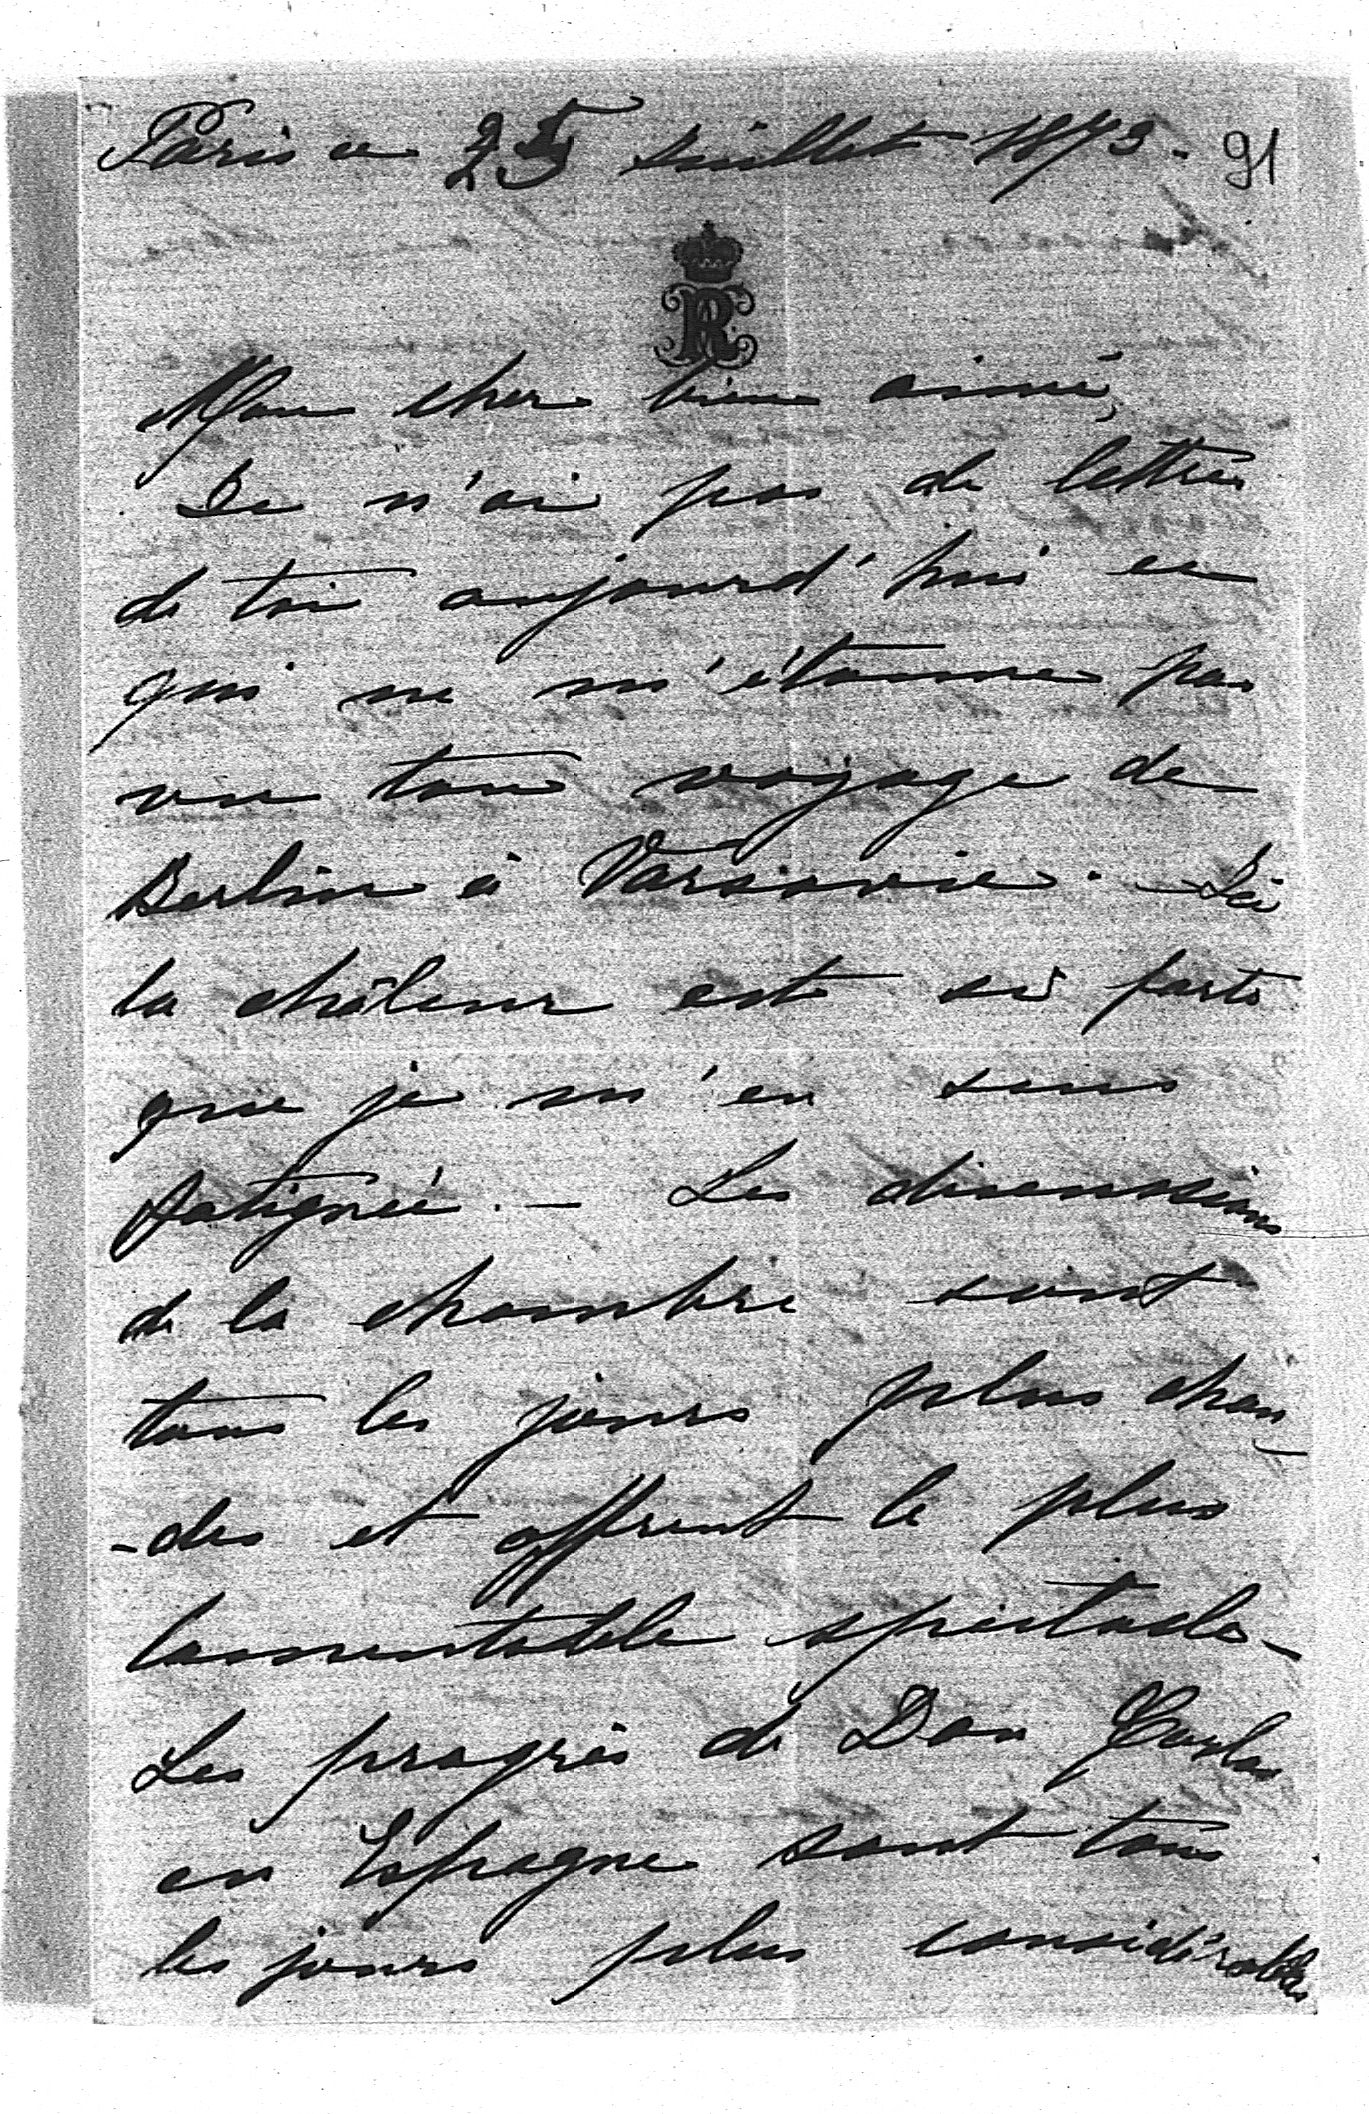 Paris ce 25 Juillet 1873. 91
R
Mon cher bien aimé,
Je n'ai pas de lettre
de toi aujourd'hui ce
qui ne m'étonne pas
vu ton voyage de
Berlin à Varsovie. — Ici
la châleur est si forte
que je m'en sens
fatiguée. — Les discussions
de la chambre sont
tous les jours plus chau
-des et offrent le plus
lamentable spectacle —
Les progrès de Don Carlos
en Espagne sont tous
les jours plus considérables